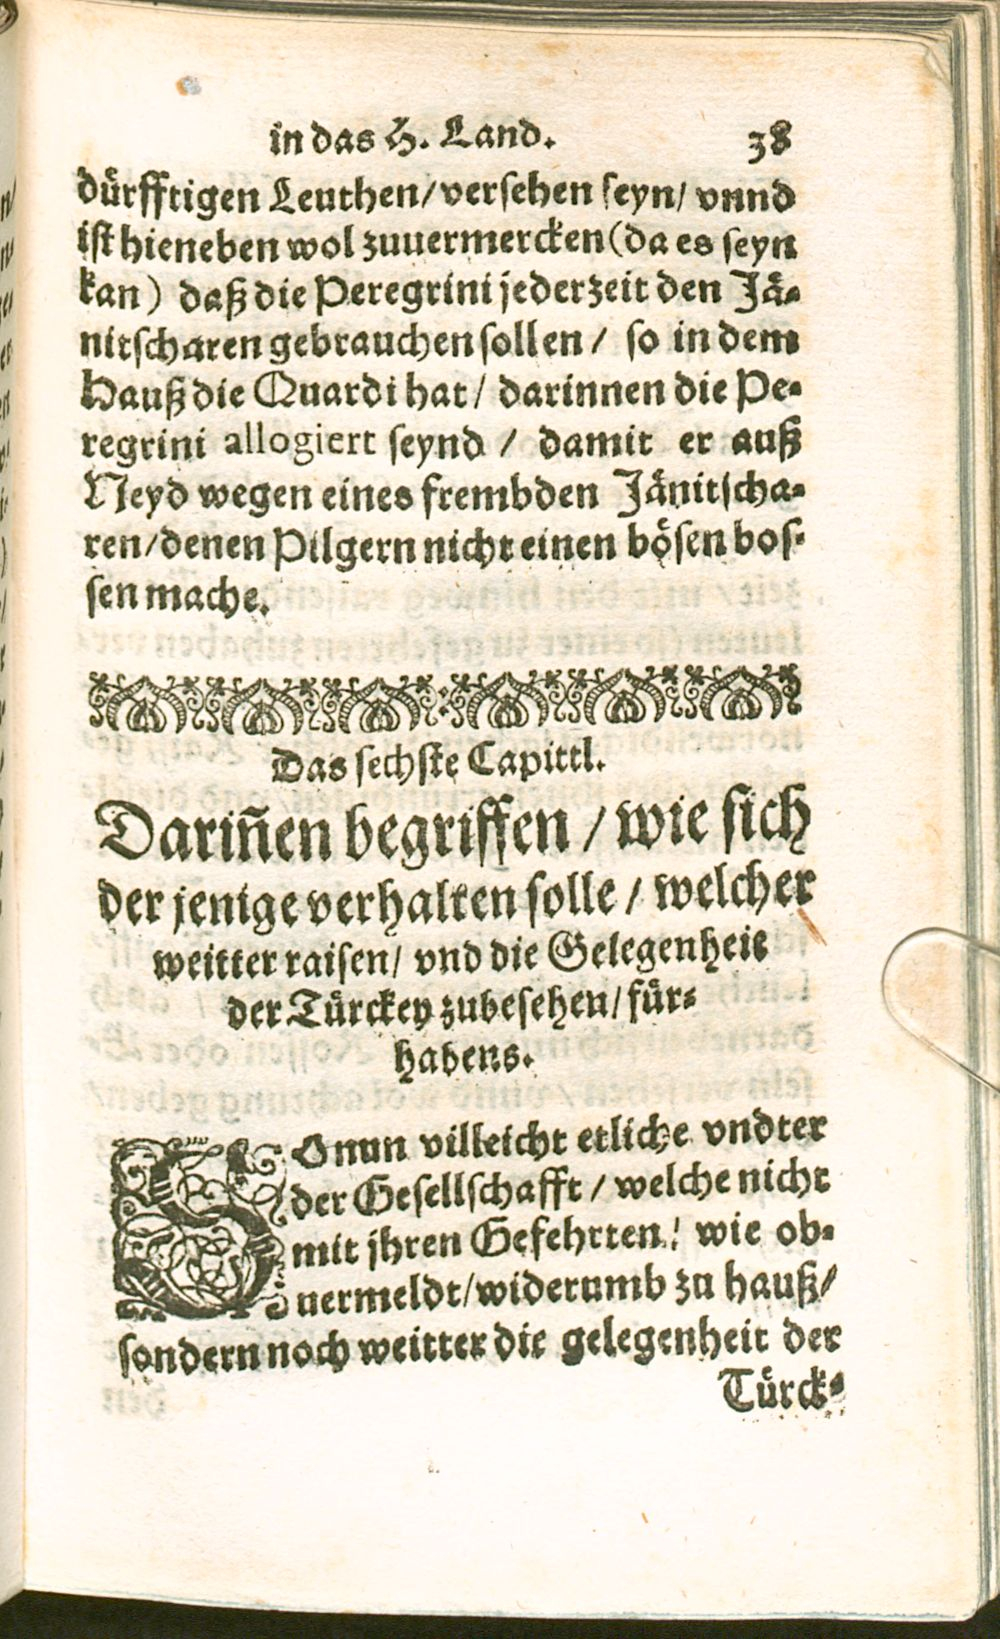 in das H. Land. 38
dürfftigen Leuthen/ versehen seyn/ vnnd
ist hieneben wol zuuermercken (da es seyn
kan) daß die Peregrini jederzeit den Jä-
nitscharen gebrauchen sollen / so in dem
Hauß die Quardi hat / darinnen die Pe-
regrini allogiert seynd / damit er auß
Neyd wegen eines frembden Jänitscha-
ren/ denen Pilgern nicht einen bösen bos-
sen mache.
Das sechste Capittl.
Dariñen begriffen / wie sich
der jenige verhalten solle / welcher
weitter raisen/ vnd die Gelegenheit
der Türckey zubesehen/ für-
habens.
SO nun villeicht etliche vndter
der Gesellschafft / welche nicht
mit jhren Gefehrten/ wie ob-
uermeldt/ widerumb zu hauß/
sondern noch weitter die gelegenheit der
Türck-